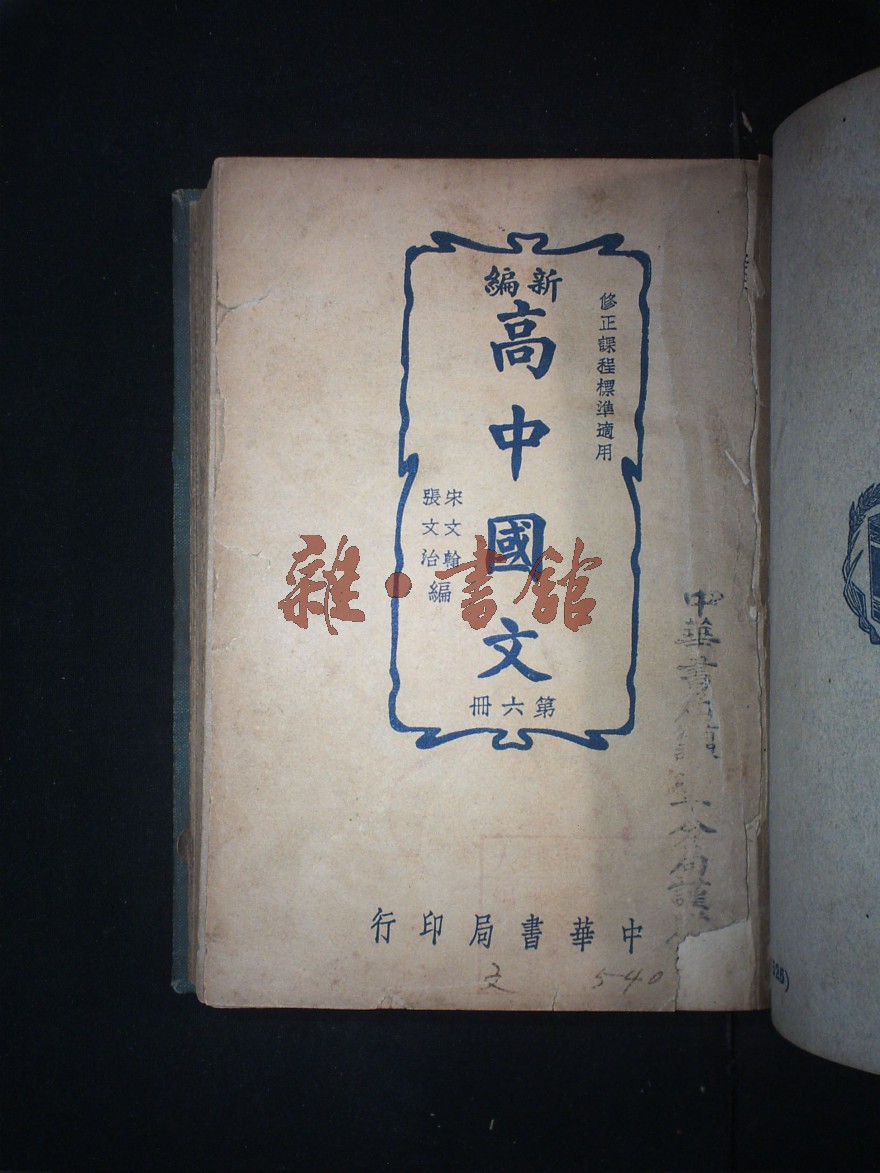 修正課程標準適用
新編
高中國文
第六冊
宋文翰
張文治
編
中華書局印行
雜·書館
中華書局
文 540